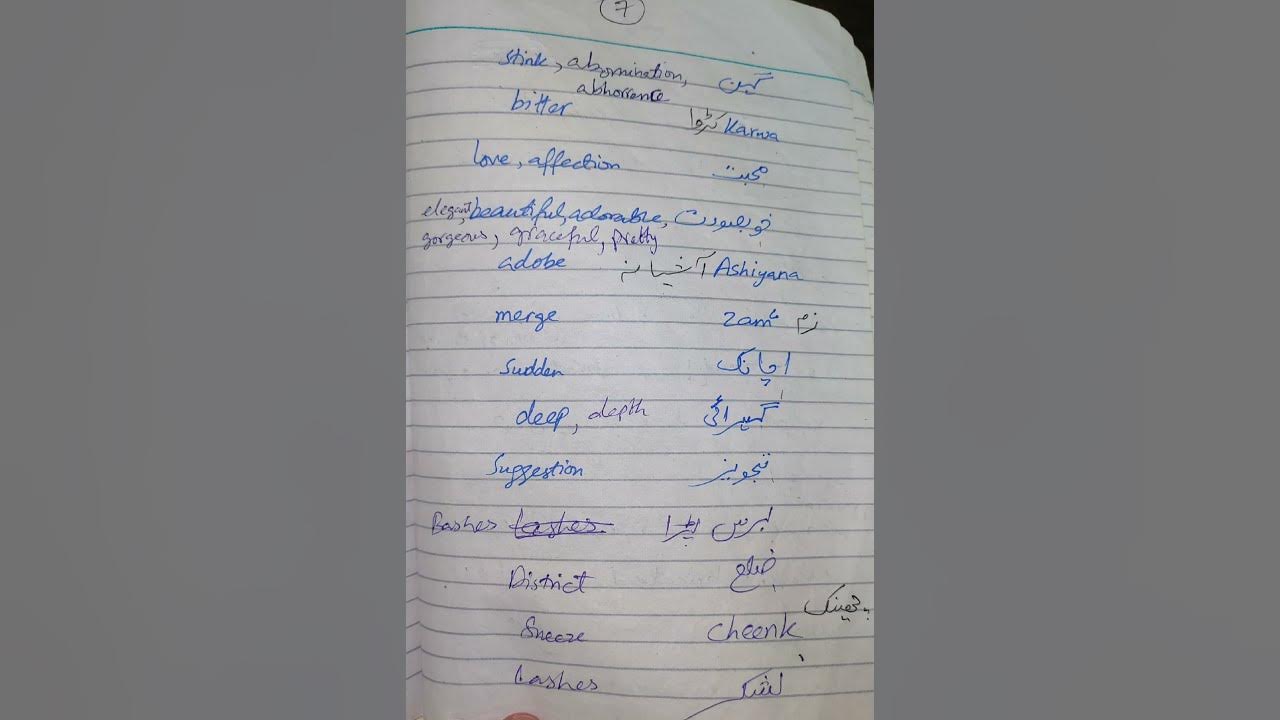 7
stink, abomination, گھن
abhorrence
bitter کڑوا Karwa
love, affection محبت
elegant, beautiful, adorable, خوبصورت
gorgeous, graceful, pretty
adobe آشیانہ Ashiyana
merge ضم
sudden اچانک
deep, depth گہرائی
Suggestion تجویز
Bashes برس پڑا
District ضلع
چھینک
Sneeze Cheenk
Lashes لشکر